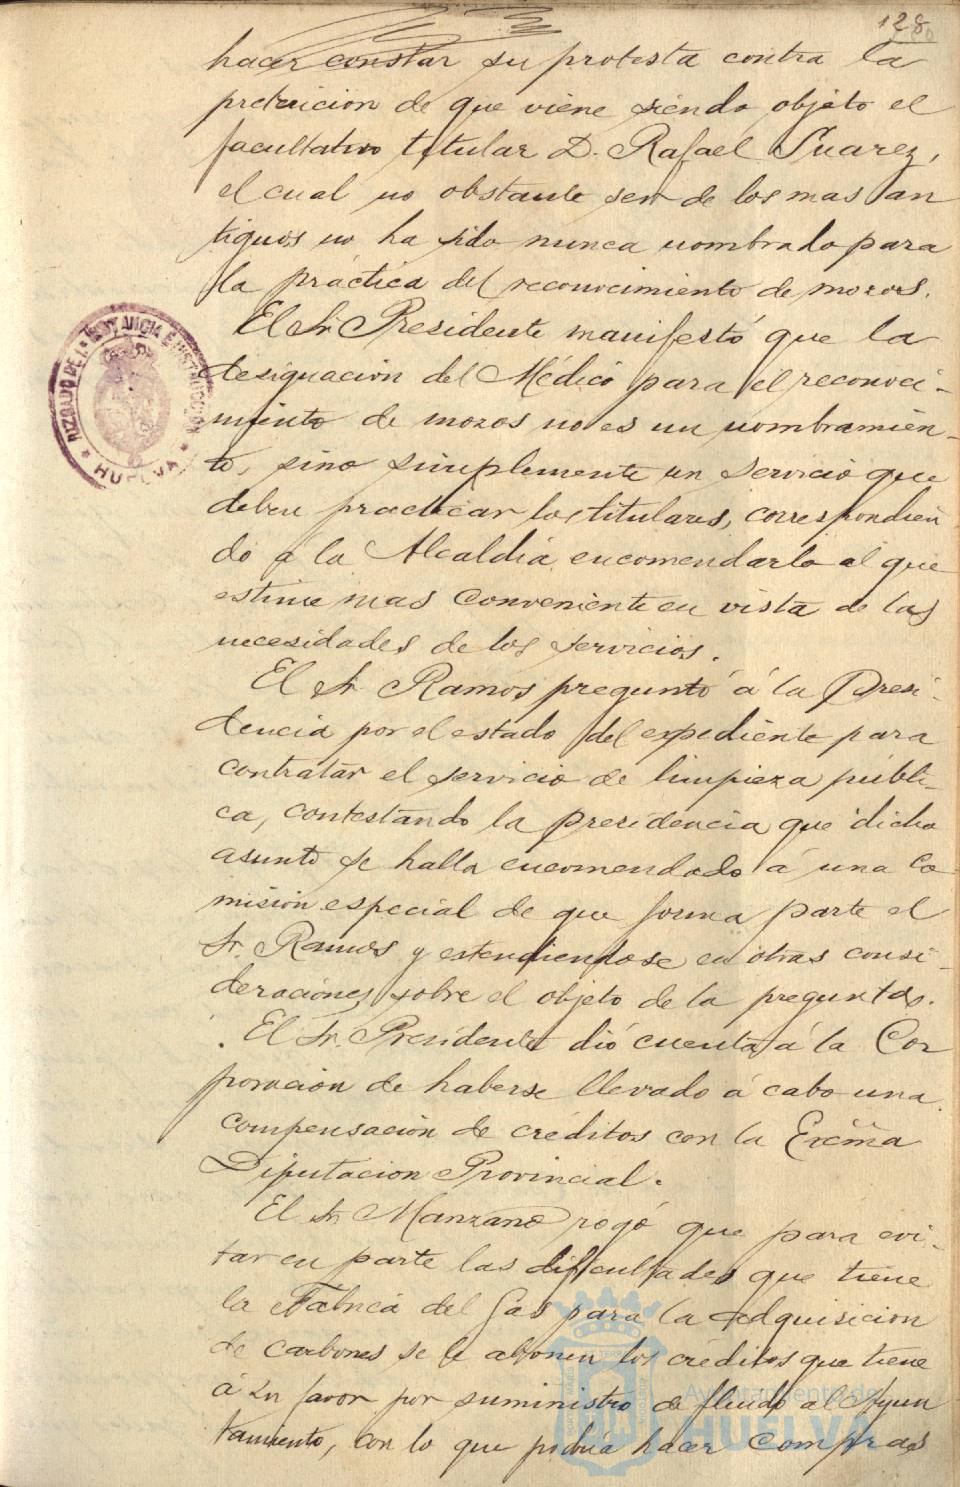 128
hacer constar su protesta contra la
pretericion de que viene siendo objeto el
facultativo titular D. Rafael Suarez,
el cual no obstante ser de los mas an
tiguos no ha sido nunca nombrado para
la práctica del reconocimiento de mozos.
El Sr. Presidente manifestó que la
designacion del Médico para el reconoci-
miento de mozos no es un nombramien-
to, sino simplemente un servicio que
deben practicar los titulares, correspondien
do á la Alcaldia encomendarlo al que
estime mas conveniente en vista de las
necesidades de los servicios.
El Sr. Ramos preguntó á la Presi-
dencia por el estado del expediente para
contratar el servicio de limpieza públi-
ca, contestando la presidencia que dicho
asunto se halla encomendado á una Co
misión especial de que forma parte el
Sr. Ramos y estendiendose en otras consi-
deraciones sobre el objeto de la pregunta.
El Sr. Presidente dió cuenta á la Cor
poración de haberse llevado á cabo una
compensación de créditos con la Excma
Diputacion Provincial.
El Sr. Manzano rogó que para evi-
tar en parte las dificultades que tiene
la Fabrica del Gas para la adquisicion
de carbones se le abonen los créditos que tiene
á su favor por suministro de fluido al Ayun
tamiento, con lo que podria hacer compras
JUZGADO DE 1ª INSTANCIA E INSTRUCCION
* HUELVA *
Ayuntamiento de
HUELVA